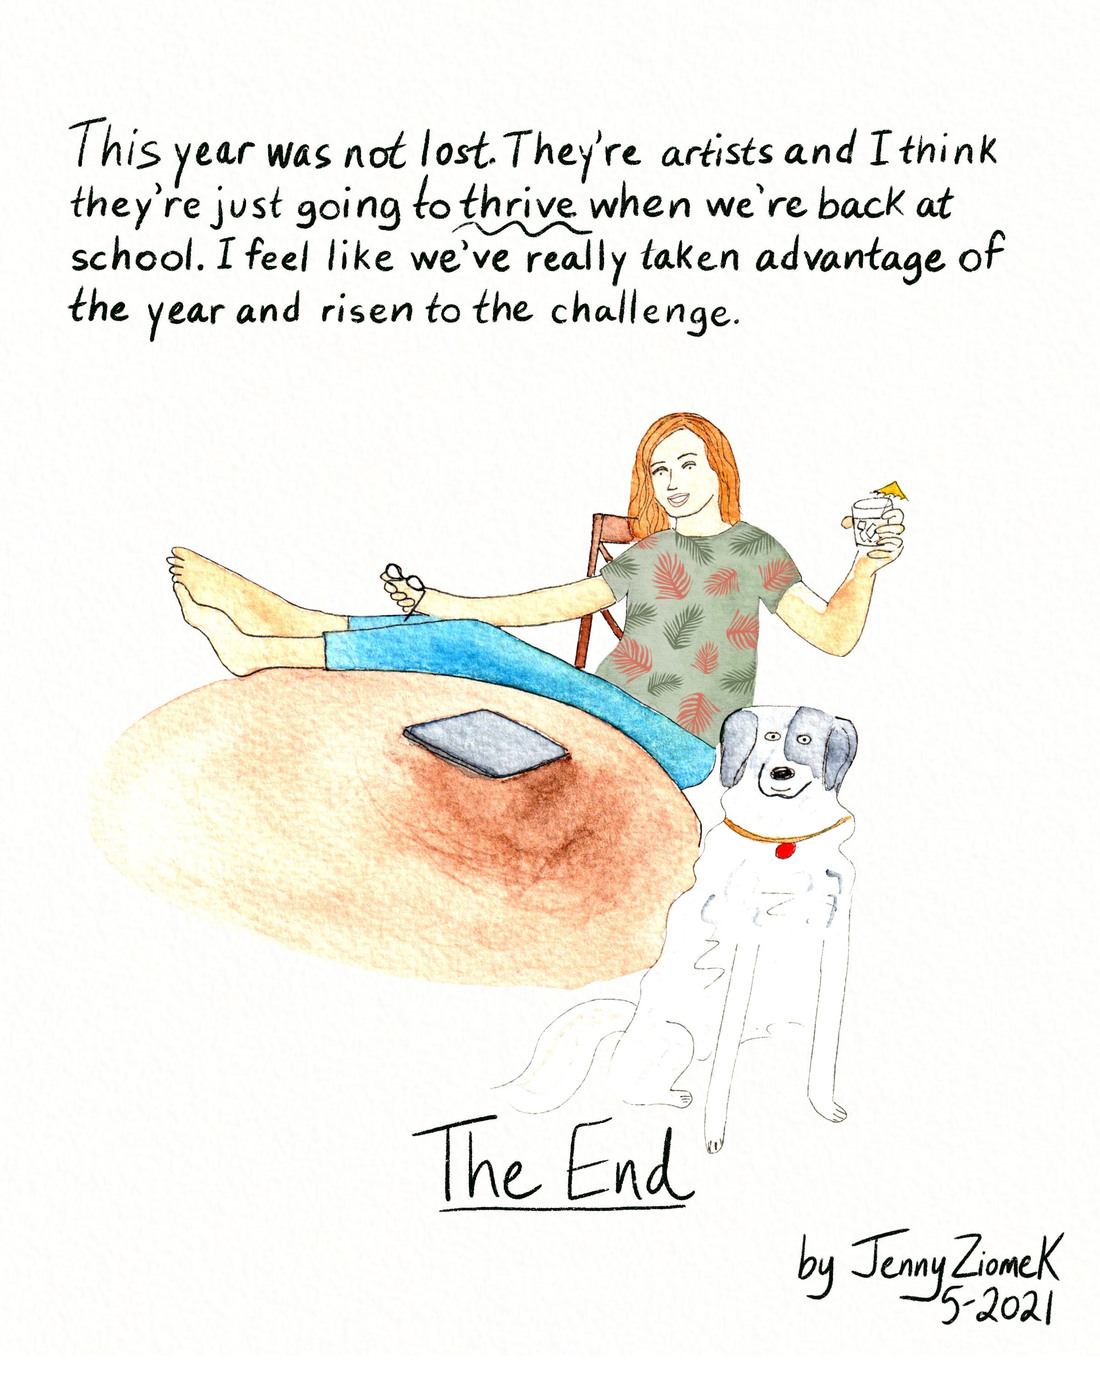 This year was not lost. They're artists and I think
they're just going to thrive when we're back at
school. I feel like we've really taken advantage of
the year and risen to the challenge.
The End
by Jenny Ziomek
5-2021